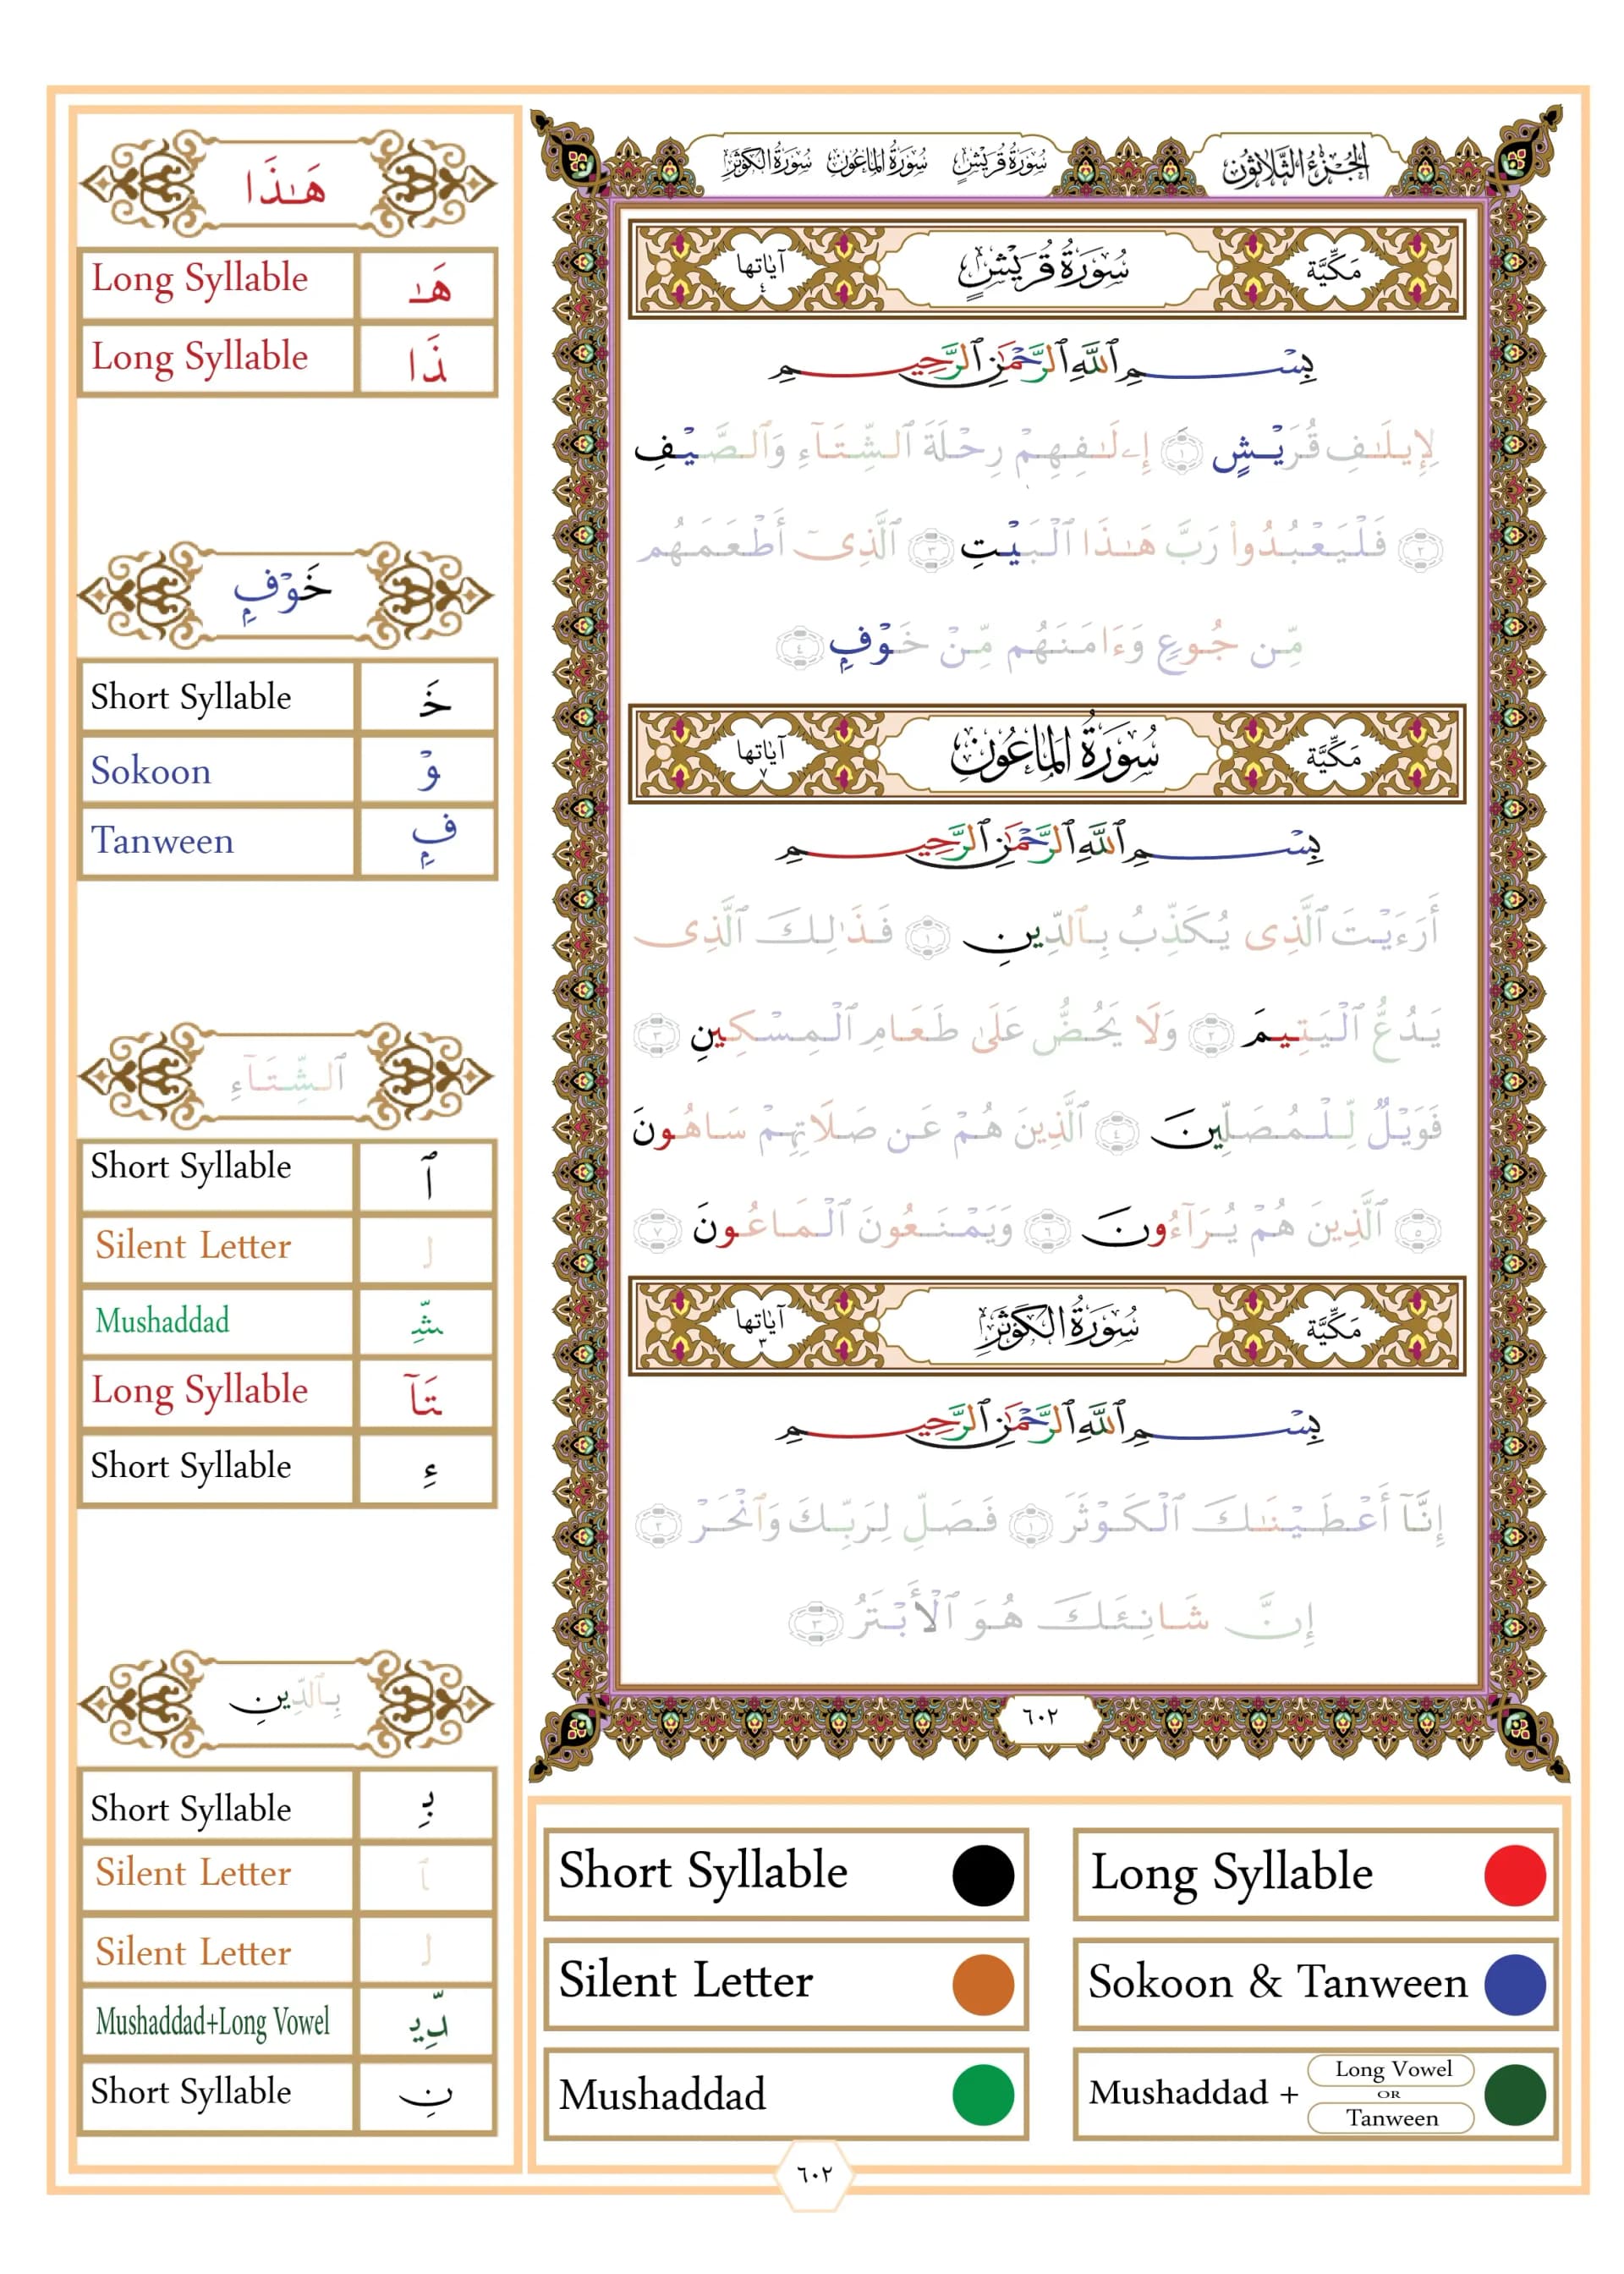 الجزء الثلاثون
سورة قريش سورة الماعون سورة الكوثر
مَكِّيَّة
سُورَةُ قُرَيْشٍ
آياتها ٤
بِسْمِ ٱللَّهِ ٱلرَّحْمَٰنِ ٱلرَّحِيمِ
لِإِيلَٰفِ قُرَيْشٍ ١ إِۦلَٰفِهِمْ رِحْلَةَ ٱلشِّتَآءِ وَٱلصَّيْفِ
٢ فَلْيَعْبُدُوا۟ رَبَّ هَٰذَا ٱلْبَيْتِ ٣ ٱلَّذِىٓ أَطْعَمَهُم
مِّن جُوعٍ وَءَامَنَهُم مِّنْ خَوْفٍۭ ٤
مَكِّيَّة
سُورَةُ المَاعُونِ
آياتها ٧
بِسْمِ ٱللَّهِ ٱلرَّحْمَٰنِ ٱلرَّحِيمِ
أَرَءَيْتَ ٱلَّذِى يُكَذِّبُ بِٱلدِّينِ ١ فَذَٰلِكَ ٱلَّذِى
يَدُعُّ ٱلْيَتِيمَ ٢ وَلَا يَحُضُّ عَلَىٰ طَعَامِ ٱلْمِسْكِينِ ٣
فَوَيْلٌ لِّلْمُصَلِّينَ ٤ ٱلَّذِينَ هُمْ عَن صَلَاتِهِمْ سَاهُونَ
٥ ٱلَّذِينَ هُمْ يُرَآءُونَ ٦ وَيَمْنَعُونَ ٱلْمَاعُونَ ٧
مَكِّيَّة
سُورَةُ الكَوْثَرِ
آياتها ٣
بِسْمِ ٱللَّهِ ٱلرَّحْمَٰنِ ٱلرَّحِيمِ
إِنَّآ أَعْطَيْنَٰكَ ٱلْكَوْثَرَ ١ فَصَلِّ لِرَبِّكَ وَٱنْحَرْ ٢
إِنَّ شَانِئَكَ هُوَ ٱلْأَبْتَرُ ٣
٦٠٢
هَٰذَا
Long Syllable هَٰ
Long Syllable ذَا
خَوْفٍۭ
Short Syllable خَ
Sokoon وْ
Tanween فٍۭ
ٱلشِّتَآءِ
Short Syllable ٱ
Silent Letter ل
Mushaddad شِّ
Long Syllable تَآ
Short Syllable ءِ
بِٱلدِّينِ
Short Syllable بِ
Silent Letter ٱ
Silent Letter ل
Mushaddad+Long Vowel دِّي
Short Syllable نِ
Short Syllable
Long Syllable
Silent Letter
Sokoon & Tanween
Mushaddad
Mushaddad + Long Vowel OR Tanween
٦٠٢